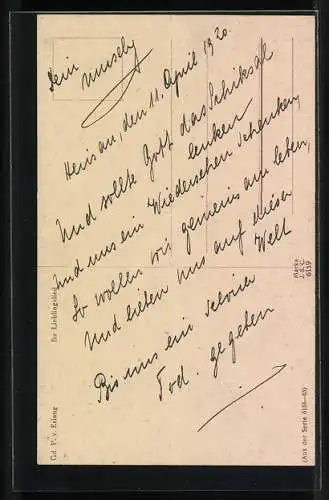 Dein
musely
Herisau, den 11. April 1920.
Und sollte Gott das Schiksal
lenken
und uns ein Wiedersehen schenken,
So wollen wir gemeinsam leben,
Und lieben uns auf dieser
Welt
Bis uns ein
Tod. gegeben
Ihr Lieblingslied
Gel. P. v. Erlang
Marke
J.S.C.
6119
(Aus der Serie 6158—63)